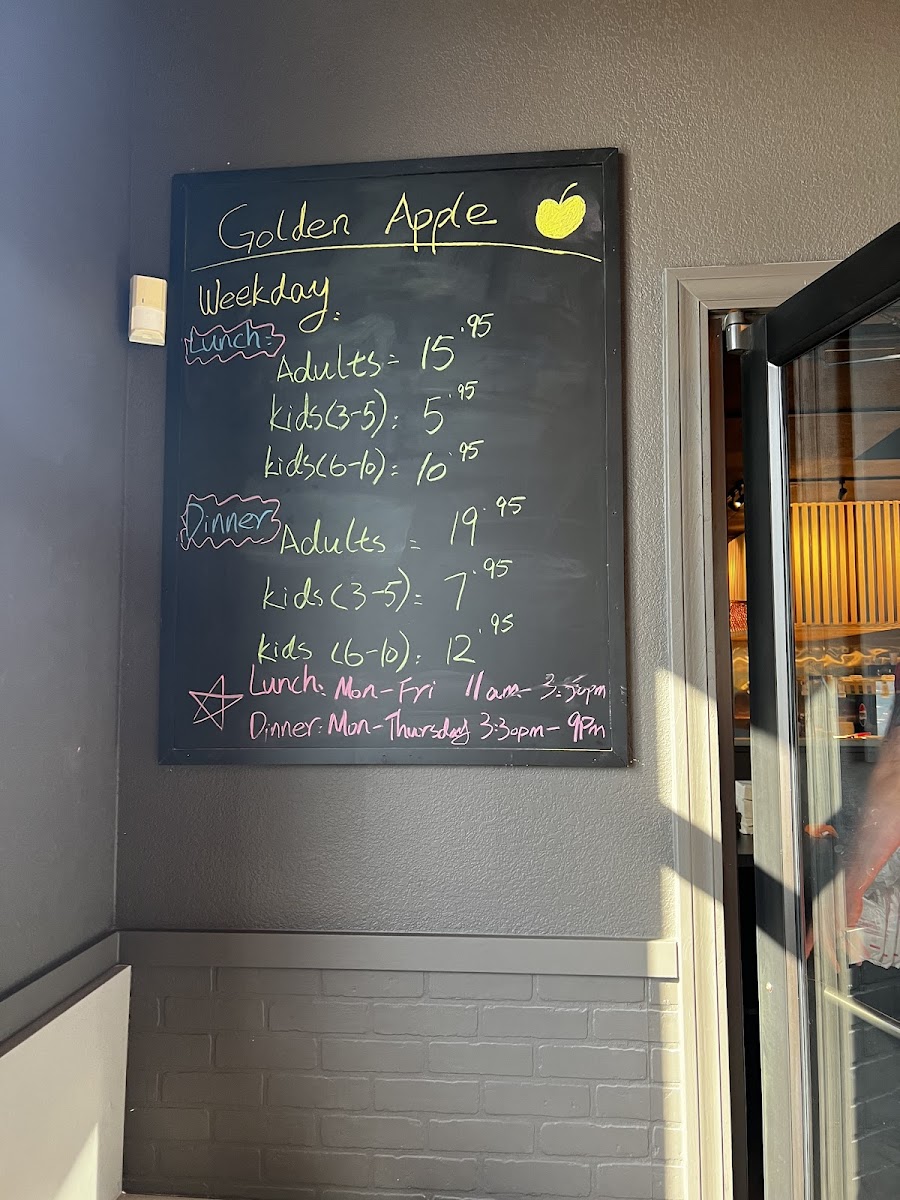 Golden Apple
Weekday:
Lunch:
Adults: 15.95
Kids (3-5): 5.95
kids (6-10): 10.95
Dinner
Adults : 19.95
kids (3-5): 7.95
kids (6-10): 12.95
Lunch: Mon-Fri 11am- 3:30pm
Dinner: Mon-Thursday 3:30pm- 9pm